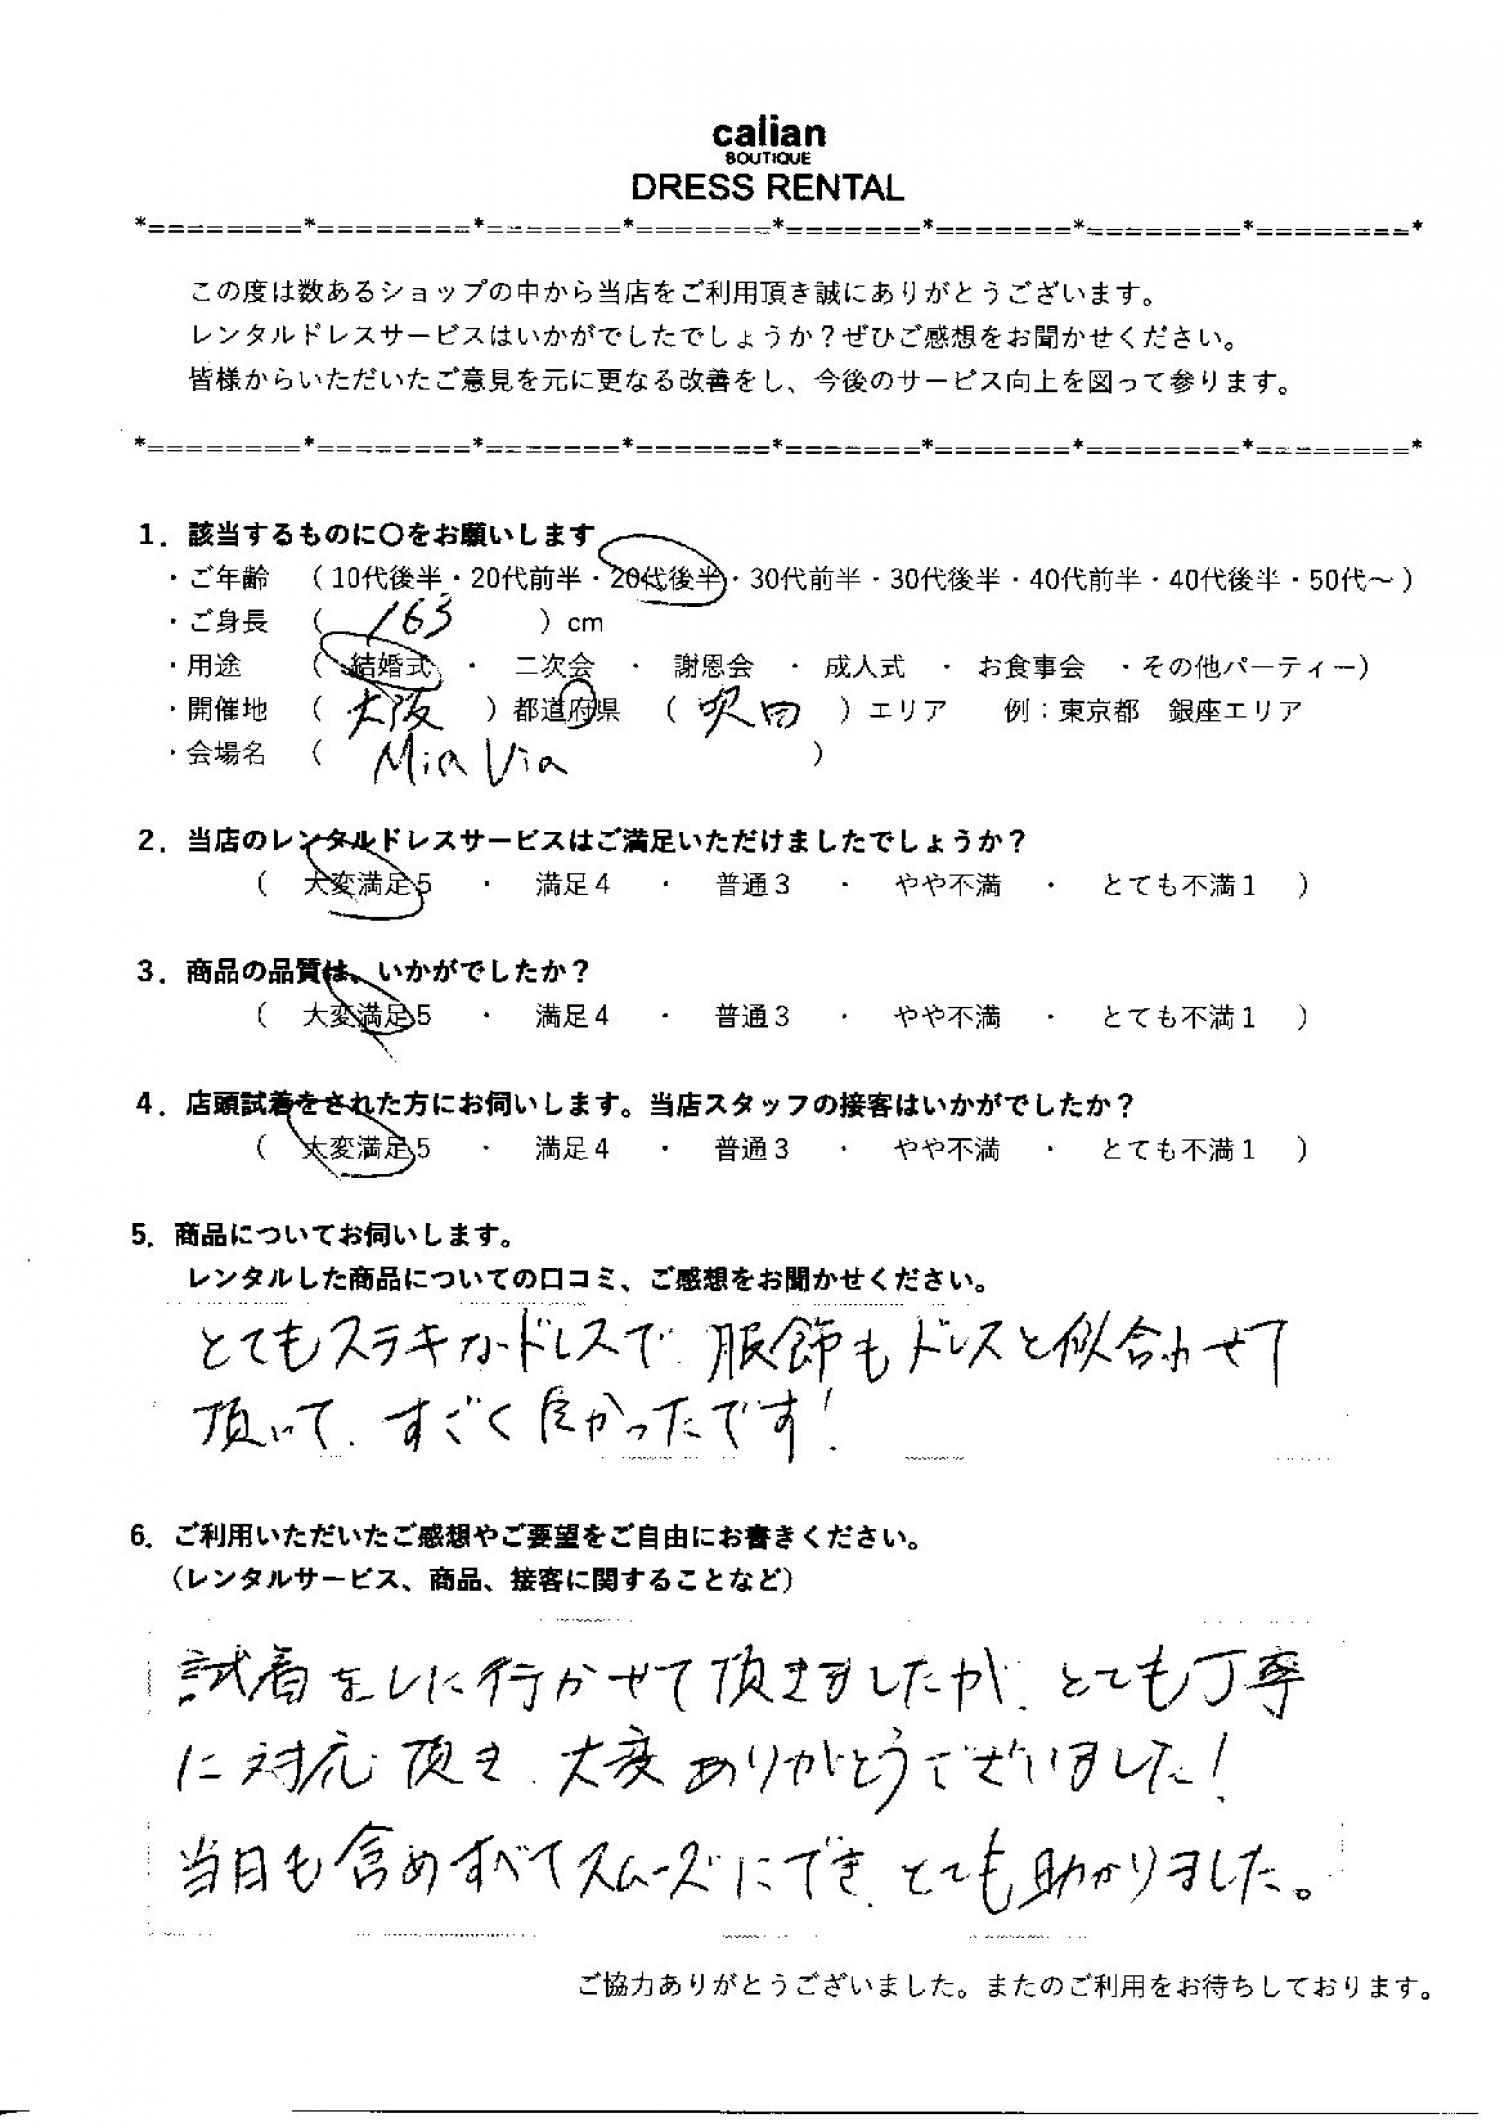 calian
BOUTIQUE
DRESS RENTAL
*========*========*=======*=======*=======*=======*========*========*
この度は数あるショップの中から当店をご利用頂き誠にありがとうございます。
レンタルドレスサービスはいかがでしたでしょうか？ぜひご感想をお聞かせください。
皆様からいただいたご意見を元に更なる改善をし、今後のサービス向上を図って参ります。
*========*========*=======*=======*=======*=======*========*========*
1．該当するものに〇をお願いします
・ご年齢 （ 10代後半・20代前半・20代後半・30代前半・30代後半・40代前半・40代後半・50代～ ）
・ご身長 （ 163 ）cm
・用途 （ 結婚式 ・ 二次会 ・ 謝恩会 ・ 成人式 ・ お食事会 ・その他パーティー）
・開催地 （ 大阪 ）都道府県 （ 吹田 ）エリア 例：東京都 銀座エリア
・会場名 （ Mia Via ）
2．当店のレンタルドレスサービスはご満足いただけましたでしょうか？
（ 大変満足5 ・ 満足4 ・ 普通3 ・ やや不満 ・ とても不満1 ）
3．商品の品質は、いかがでしたか？
（ 大変満足5 ・ 満足4 ・ 普通3 ・ やや不満 ・ とても不満1 ）
4．店頭試着をされた方にお伺いします。当店スタッフの接客はいかがでしたか？
（ 大変満足5 ・ 満足4 ・ 普通3 ・ やや不満 ・ とても不満1 ）
5．商品についてお伺いします。
レンタルした商品についての口コミ、ご感想をお聞かせください。
とてもステキなドレスで、服飾もドレスと似合わせて
頂いて、すごく良かったです！
6．ご利用いただいたご感想やご要望をご自由にお書きください。
（レンタルサービス、商品、接客に関することなど）
試着をしに行かせて頂きましたが、とても丁寧
に対応頂き、大変ありがとうございました！
当日も含めすべてスムーズにでき、とても助かりました。
ご協力ありがとうございました。またのご利用をお待ちしております。